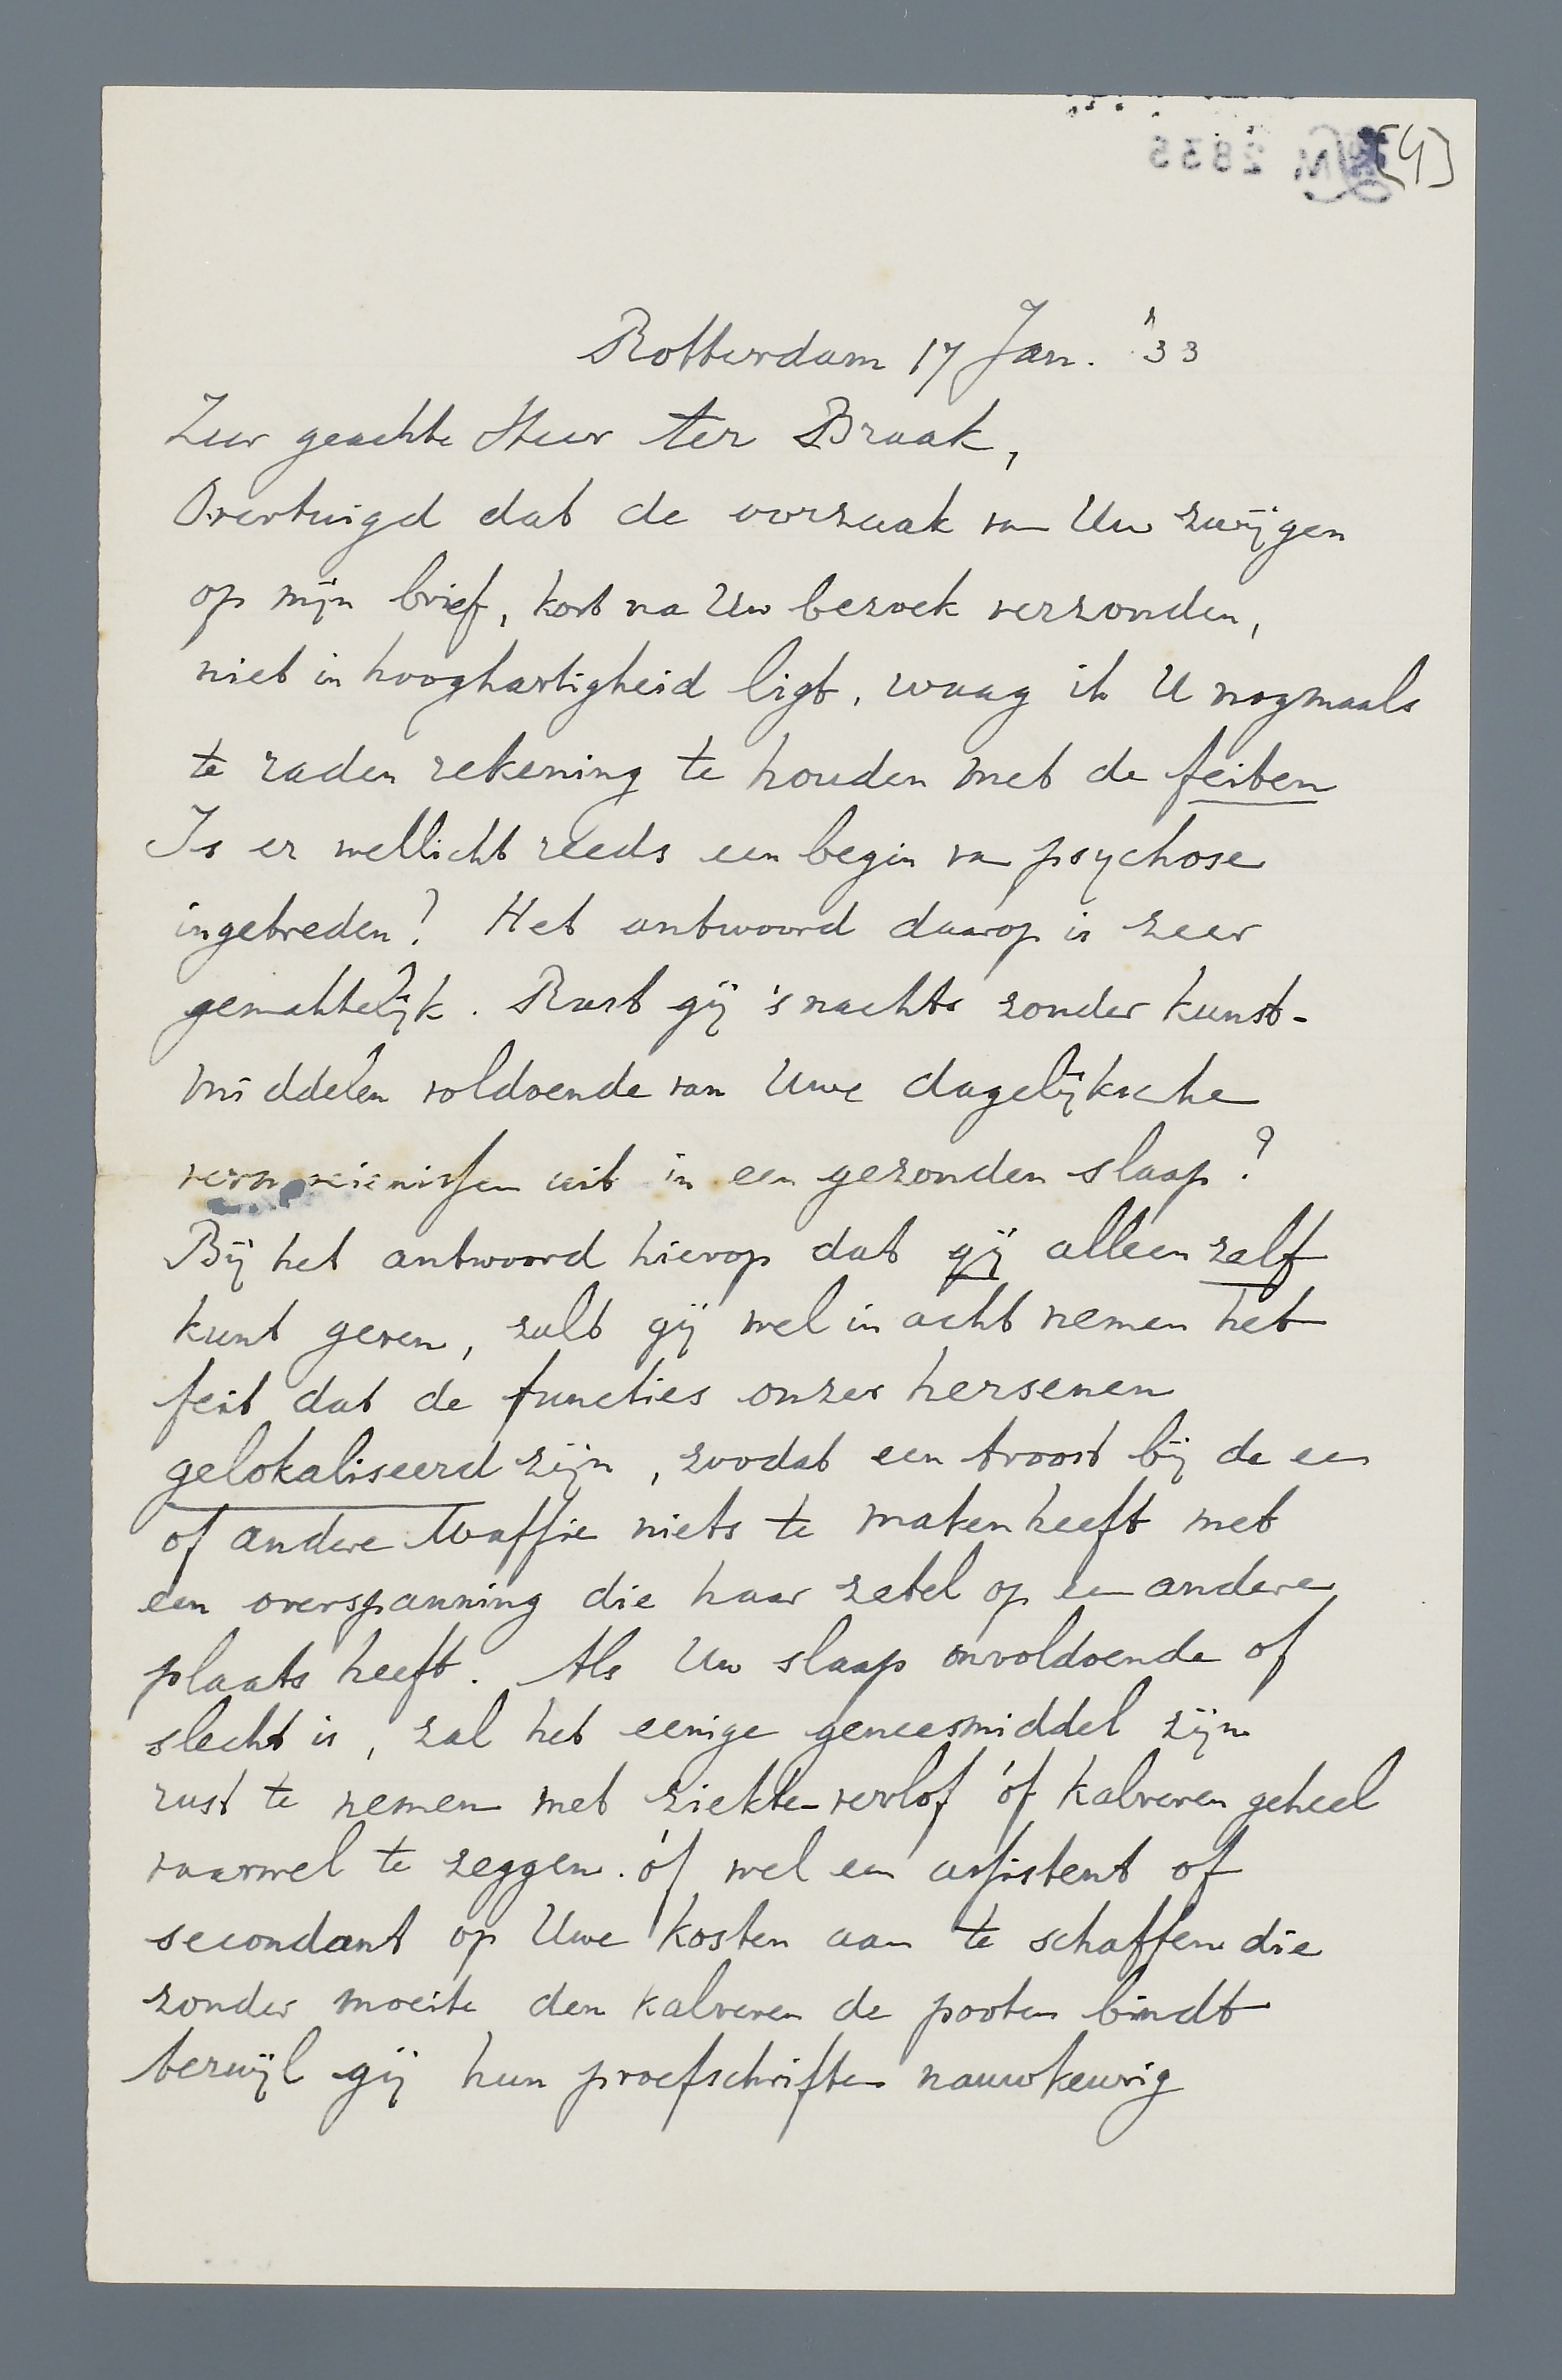 [4]
2835
Rotterdam 17 Jan. '33
Zeer geachte Heer ter Braak,
Overtuigd dat de oorzaak van Uw zwijgen
op mijn brief, kort na Uw bezoek verzonden,
niet in hooghartigheid ligt, waag ik U nogmaals
te raden rekening te houden met de feiten
Is er wellicht reeds een begin van psychose
ingetreden? Het antwoord daarop is zeer
gemakkelijk. Rust gij 's nachts zonder kunst-
middelen voldoende van Uwe dagelijksche
vermoeienissen uit in een gezonden slaap?
Bij het antwoord hierop dat gij alleen zelf
kunt geven, zult gij wel in acht nemen het
feit dat de functies onzer hersenen
gelokaliseerd zijn, zoodat een troost bij de een
of andere Waffie niets te maken heeft met
een overspanning die haar zetel op een andere
plaats heeft. Als Uw slaap onvoldoende of
slecht is, zal het eenige geneesmiddel zijn
rust te nemen met ziekte-verlof óf kalveren geheel
vaarwel te zeggen. óf wel een assistent of
secondant op Uwe kosten aan te schaffen die
zonder moeite den kalveren de pooten bindt
terwijl gij hun proefschriften nauwkeurig